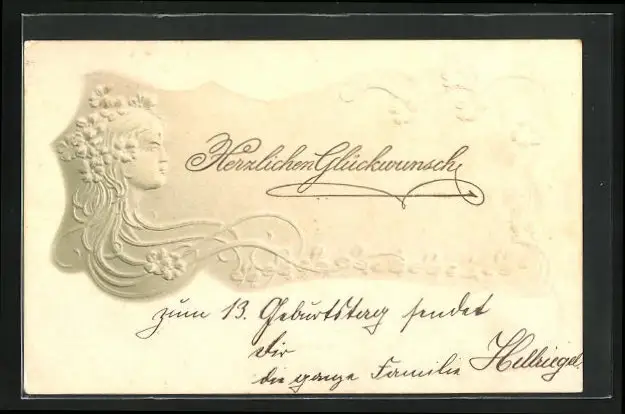 Herzlichen Glückwunsch
zum 13. Geburtstag sendet
Dir
die ganze Familie Hellriegel.